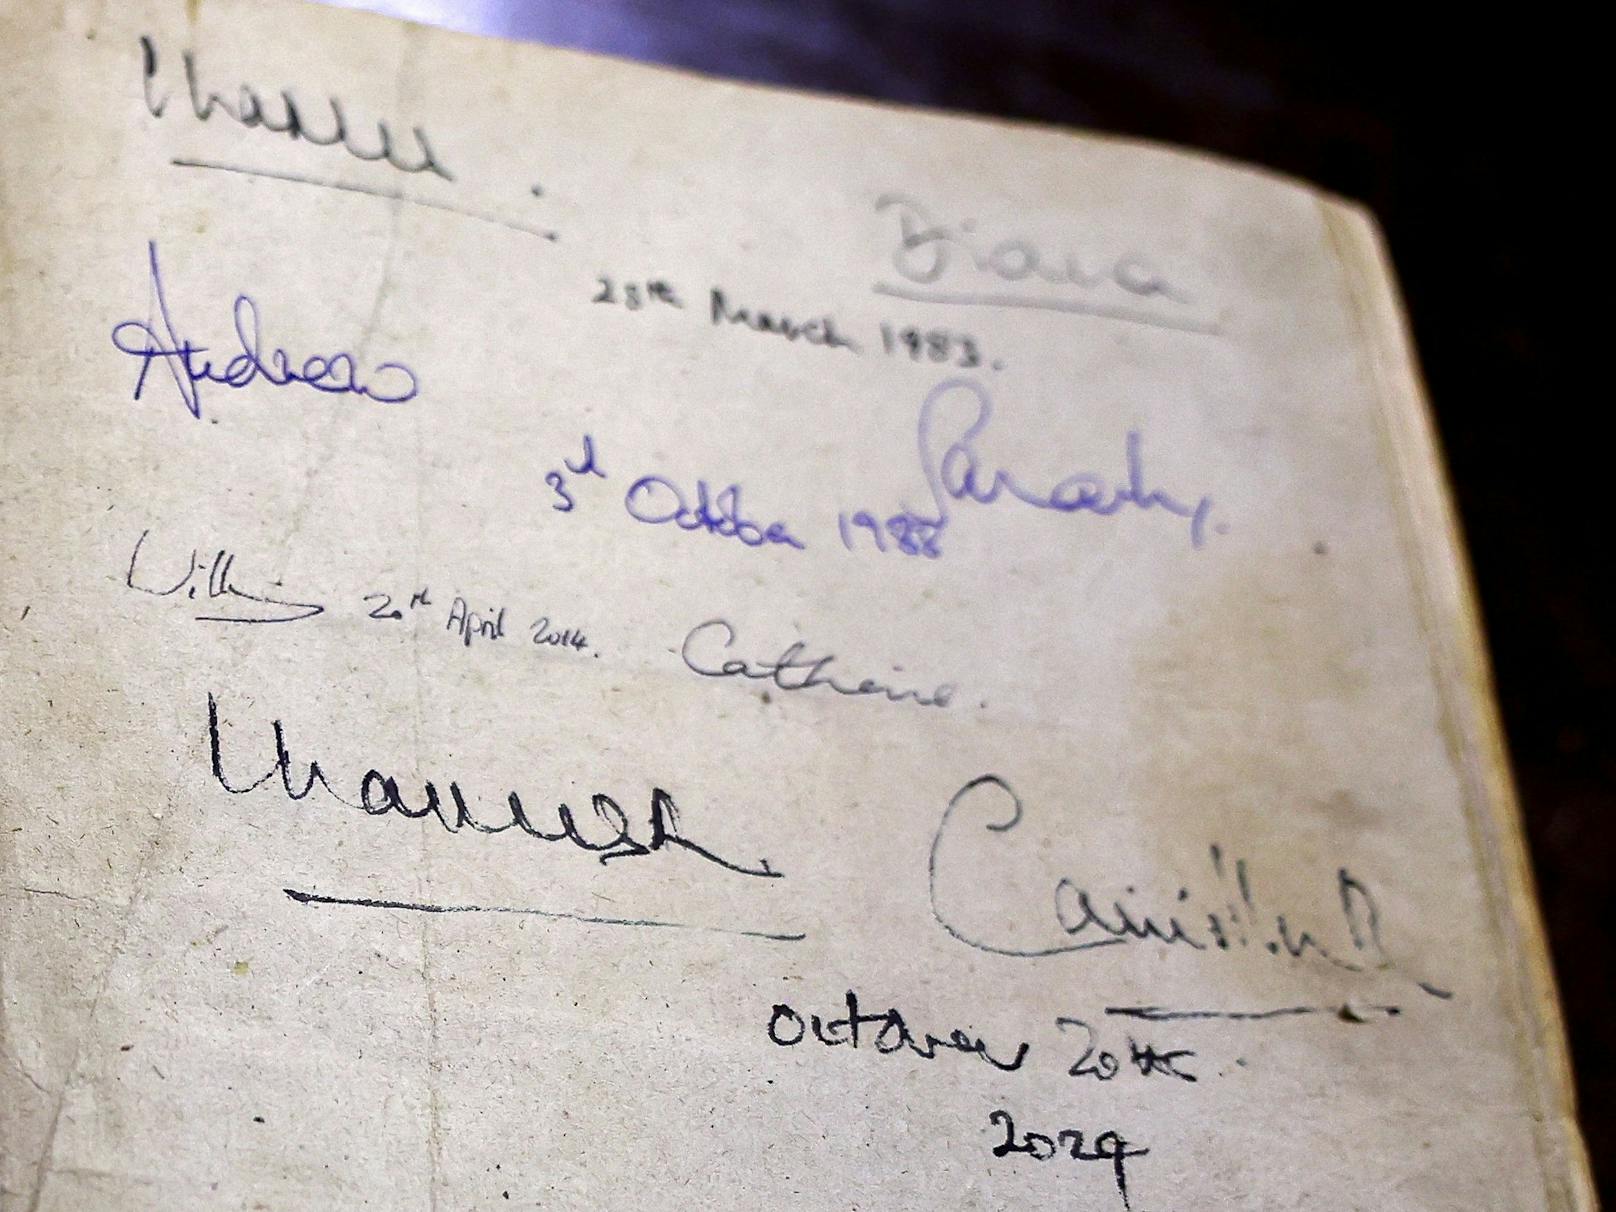 Charles.
Diana
28th March 1983.
Andrew
Sarah.
3rd October 1988
William 20th April 2014. Catherine.
Charles R.
Camilla R
October 20th
2024